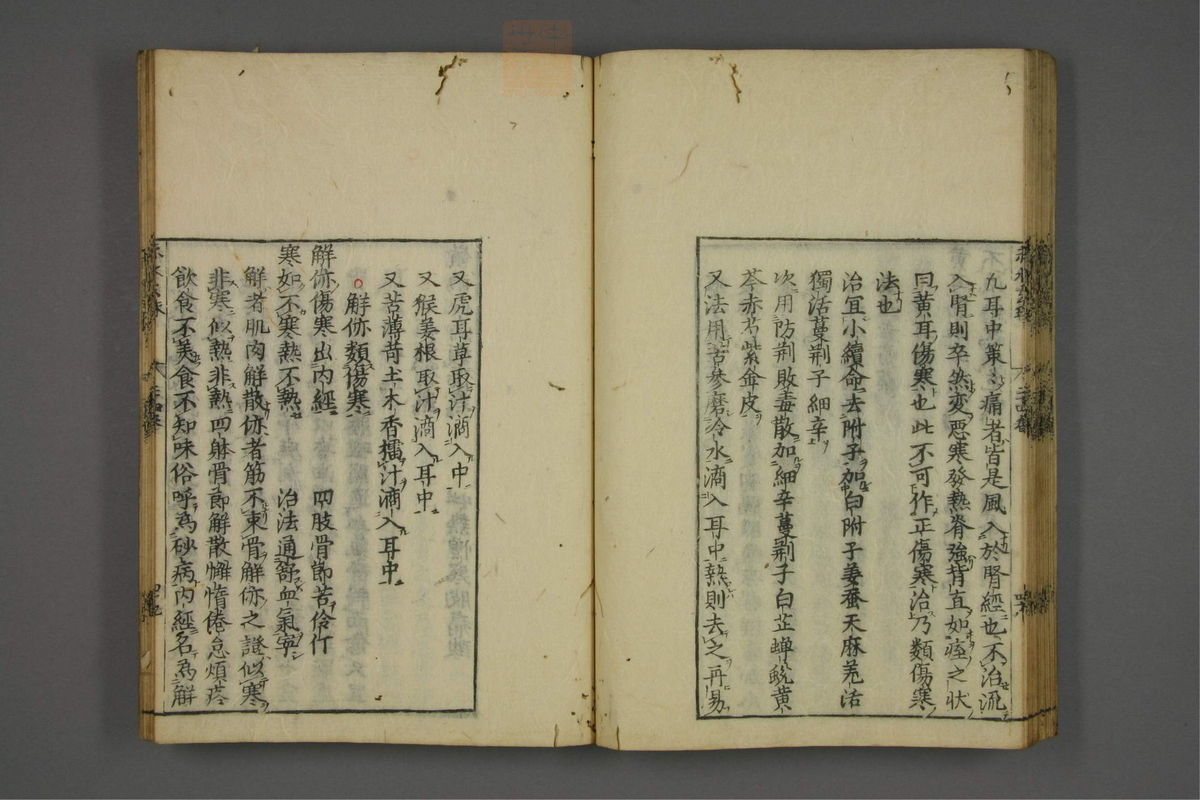 九耳中策〻痛者皆是風入於腎經也不治流
入腎則卒然変悪寒發熱脊強背直如痓之状
曰黄耳傷寒也此不可作正傷寒治乃類傷寒
法也
治宜小續命去附子加白附子姜蚕天麻羌活
獨活蔓荆子細辛
次用防荆敗毒散加細辛蔓荆子白芷蟬蛻黄
芩赤芍紫金皮
又法用苦參磨冷水滴入耳中熱則去之再易
又虎耳草取汁滴入中
又猴姜根取汁滴入耳中
又苦薄苛土木香擂汁滴入耳中
解㑊類傷寒
解㑊傷寒出内經 四肢骨節苦伶仃
寒如不寒熱不熱 治法通舒血氣寧
解者肌肉解散㑊者筋不束骨解㑊之證似寒
非寒似熱非熱四躰骨節解散懈惰倦怠煩疼
飲食不美食不知味俗呼為砂病内經名為解